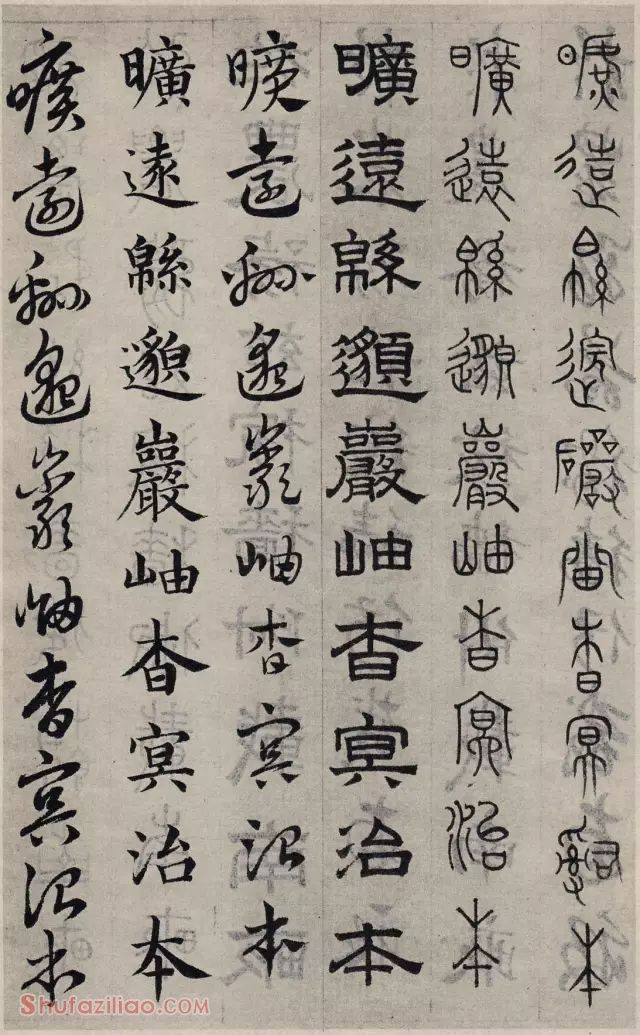 曠遠緜邈巖岫杳冥治本
曠遠緜邈巖岫杳冥治本
曠遠緜邈巖岫杳冥治本
曠遠緜邈巖岫杳冥治本
曠遠緜邈巖岫杳冥治本
曠遠緜邈巖岫杳冥治本
Shufaziliao.COM